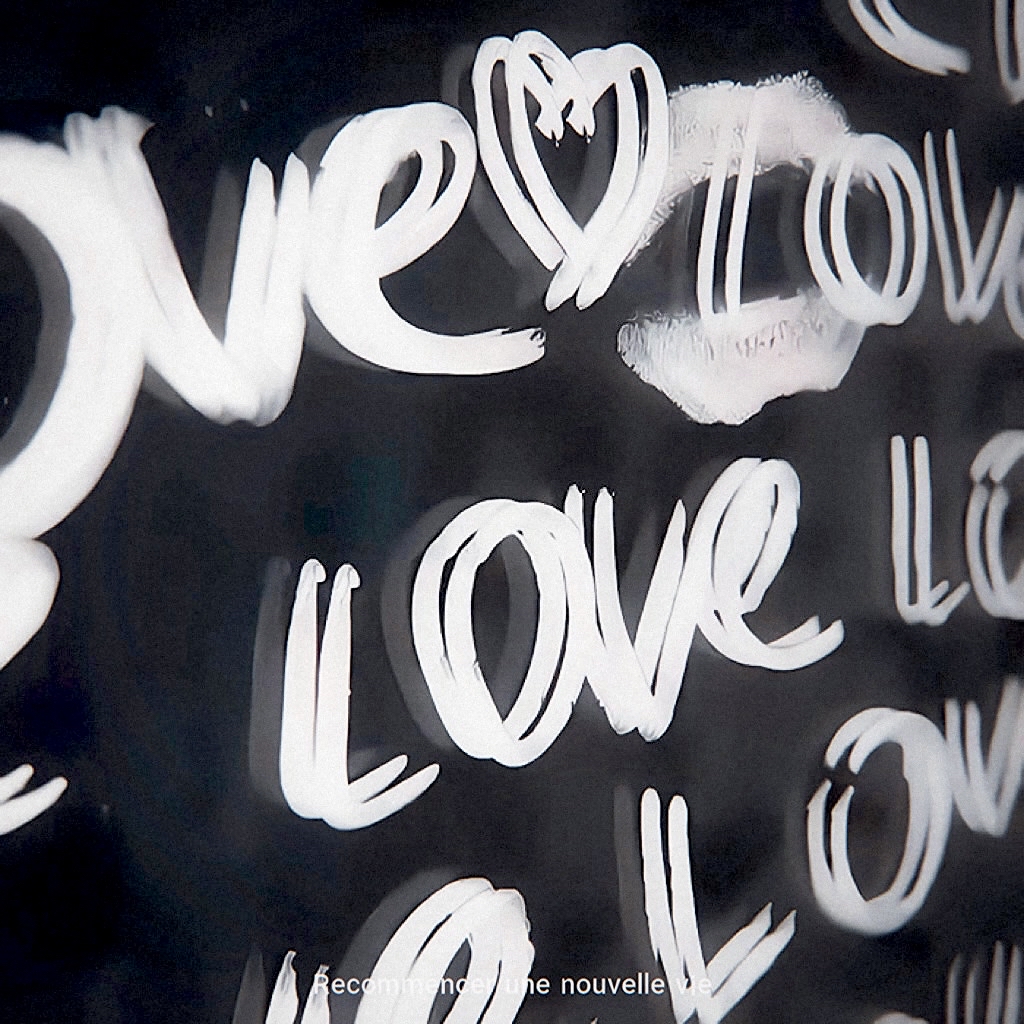 ove Love
Love Lo
L ov
Recommencer une nouvelle vie